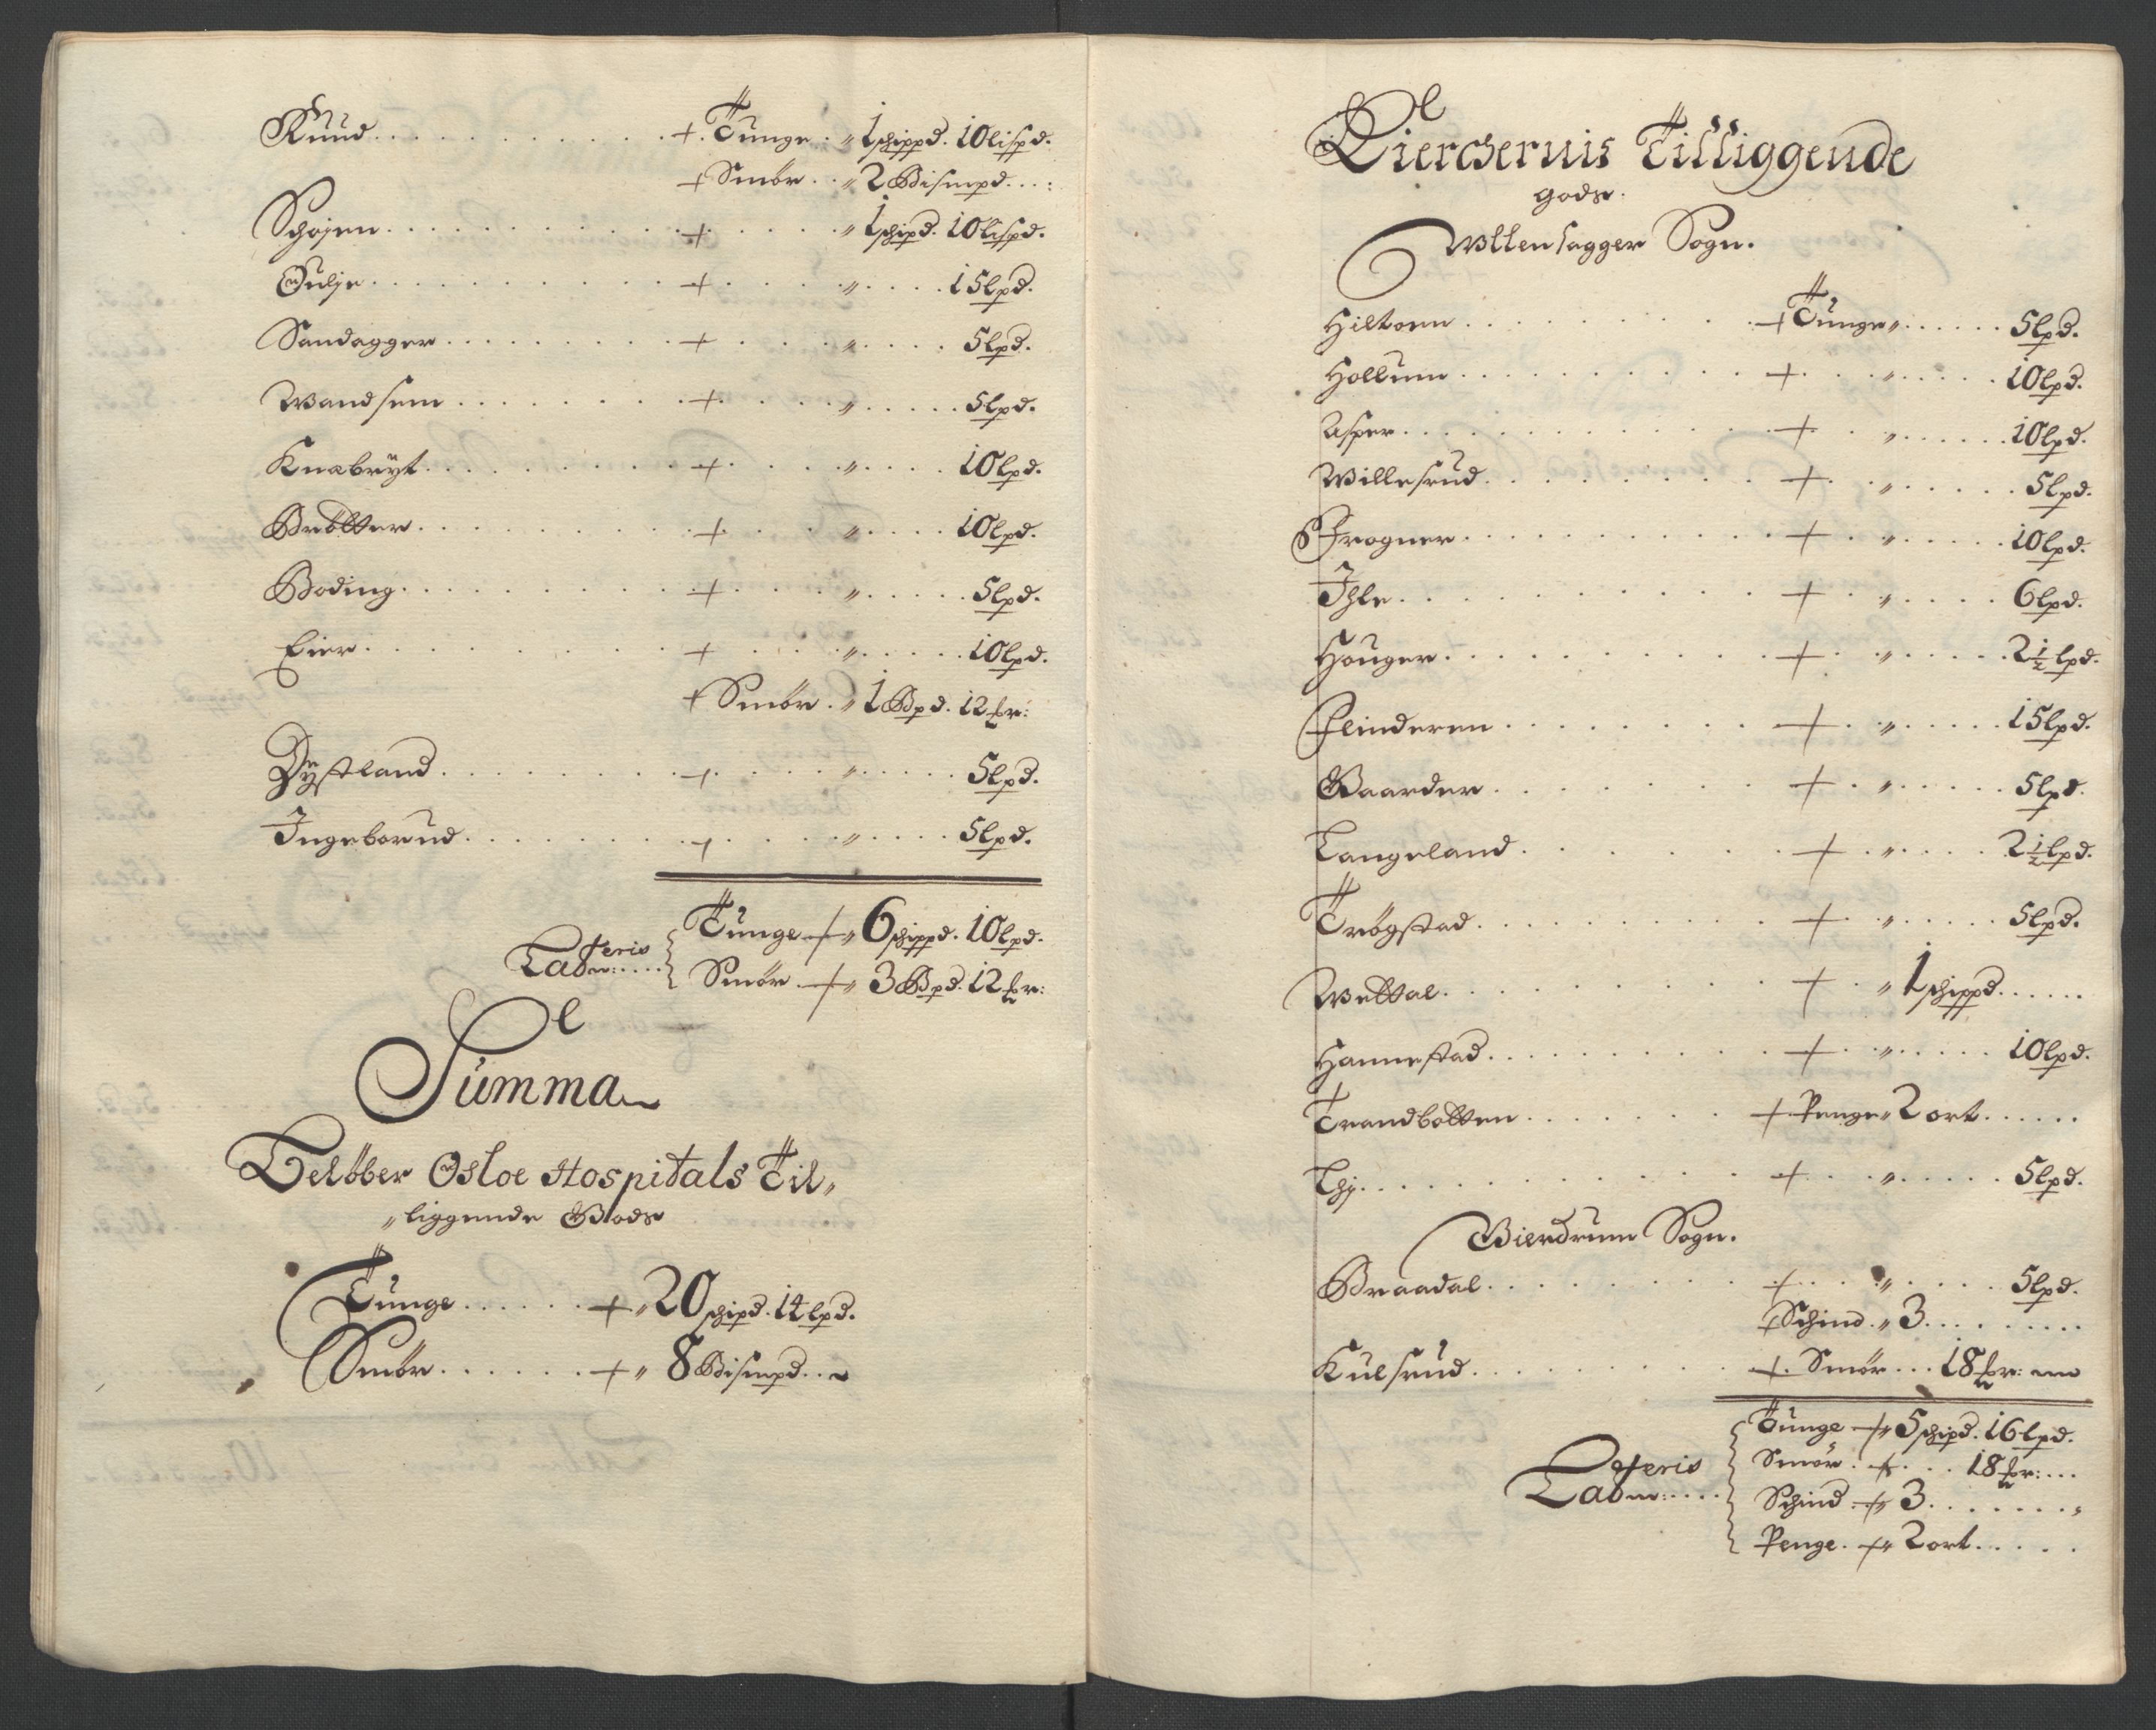 Ruud . . . + Tunge . „ 1 schippd. 10 lispd.
+ Smör . . „ 2 Bismpd . . . :
Schöjen . . . + . . . „ 1 schipd. 10 lispd.
Gulje . . . + . . . „ . . . 15 lpd.
Sandagger . . . + . . . „ . . . 5 lpd.
Wandsem . . . + . . . „ . . . 5 lpd.
Knabryt . . . + . . . „ . . . 10 lpd.
Bråtter . . . + . . . „ . . . 10 lpd.
Boding . . . + . . . „ . . . 5 lpd.
Eier . . . + . . . „ . . . 10 lpd.
+ Smör . „ 1 Bpd. 12 mr:
Dystland . . . + . . . „ . . . 5 lpd.
Ingeborud . . . + . . . „ . . . 5 lpd.
Lateris { Tunge + „ 6 schippd. 10 lpd.
Smör + „ 3 Bpd. 12 mr:
Summa
Belöber Osloe Hospitals Til„
„liggende Gods
Tunge . . . + „ 20 schipd. 14 lpd.
Smör . . . + „ 8 Bismpd . . .
Kierchernis Tilliggende
gods.
Wllensagger Sogn.
Hiltoen . . . + Tunge „ . . . 5 lpd.
Hollum . . . + . . . „ . . . 10 lpd.
Asper . . . + . . . „ . . . 10 lpd.
Willesrud . . . + . . . „ . . . 5 lpd.
Frogner . . . + . . . „ . . . 10 lpd.
Ihle . . . + . . . „ . . . 6 lpd.
Houger . . . + . . . „ . . . 2½ lpd.
Flinderen . . . + . . . „ . . . 15 lpd.
Gaarder . . . + . . . „ . . . 5 lpd.
Langeland . . . + . . . „ . . . 2½ lpd.
Trögstad . . . + . . . „ . . . 5 lpd.
Wettal . . . + . „ 1 schippd. . . .
Hannestad . . . + . . . „ . . . 10 lpd.
Trandbotten . . . + Penge „ 2 ort . . .
Lhj . . . + . . . „ . . . 5 lpd.
Gierdrum Sogn.
Braadal . . . + . . . „ . . . 5 lpd.
+ Schind . „ 3 . . .
Kulsrud . . . + . Smör . . . 18 mr:
Lateris { Tunge + „ 5 schipd. 16 lpd.
Smör . + . . . 18 mr: . . .
Schind . + „ 3 . . .
Penge . + „ 2 ort . . .